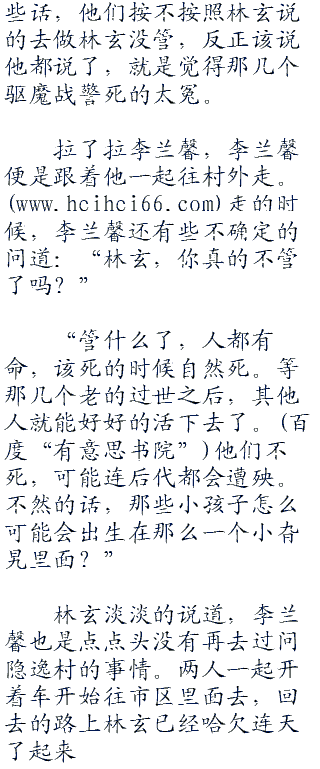 些话，他们按不按照林玄说
的去做林玄没管，反正该说
他都说了，就是觉得那几个
驱魔战警死的太冤。
拉了拉李兰馨，李兰馨
便是跟着他一起往村外走。
(www.hcihci66.com)走的时
候，李兰馨还有些不确定的
问道：“林玄，你真的不管
了吗？”
“管什么了，人都有
命，该死的时候自然死。等
那几个老的过世之后，其他
人就能好好的活下去了。(百
度“有意思书院”)他们不
死，可能连后代都会遭殃。
不然的话，那些小孩子怎么
可能会出生在那么一个小旮
旯里面？”
林玄淡淡的说道，李兰
馨也是点点头没有再去过问
隐逸村的事情。两人一起开
着车开始往市区里面去，回
去的路上林玄已经哈欠连天
了起来